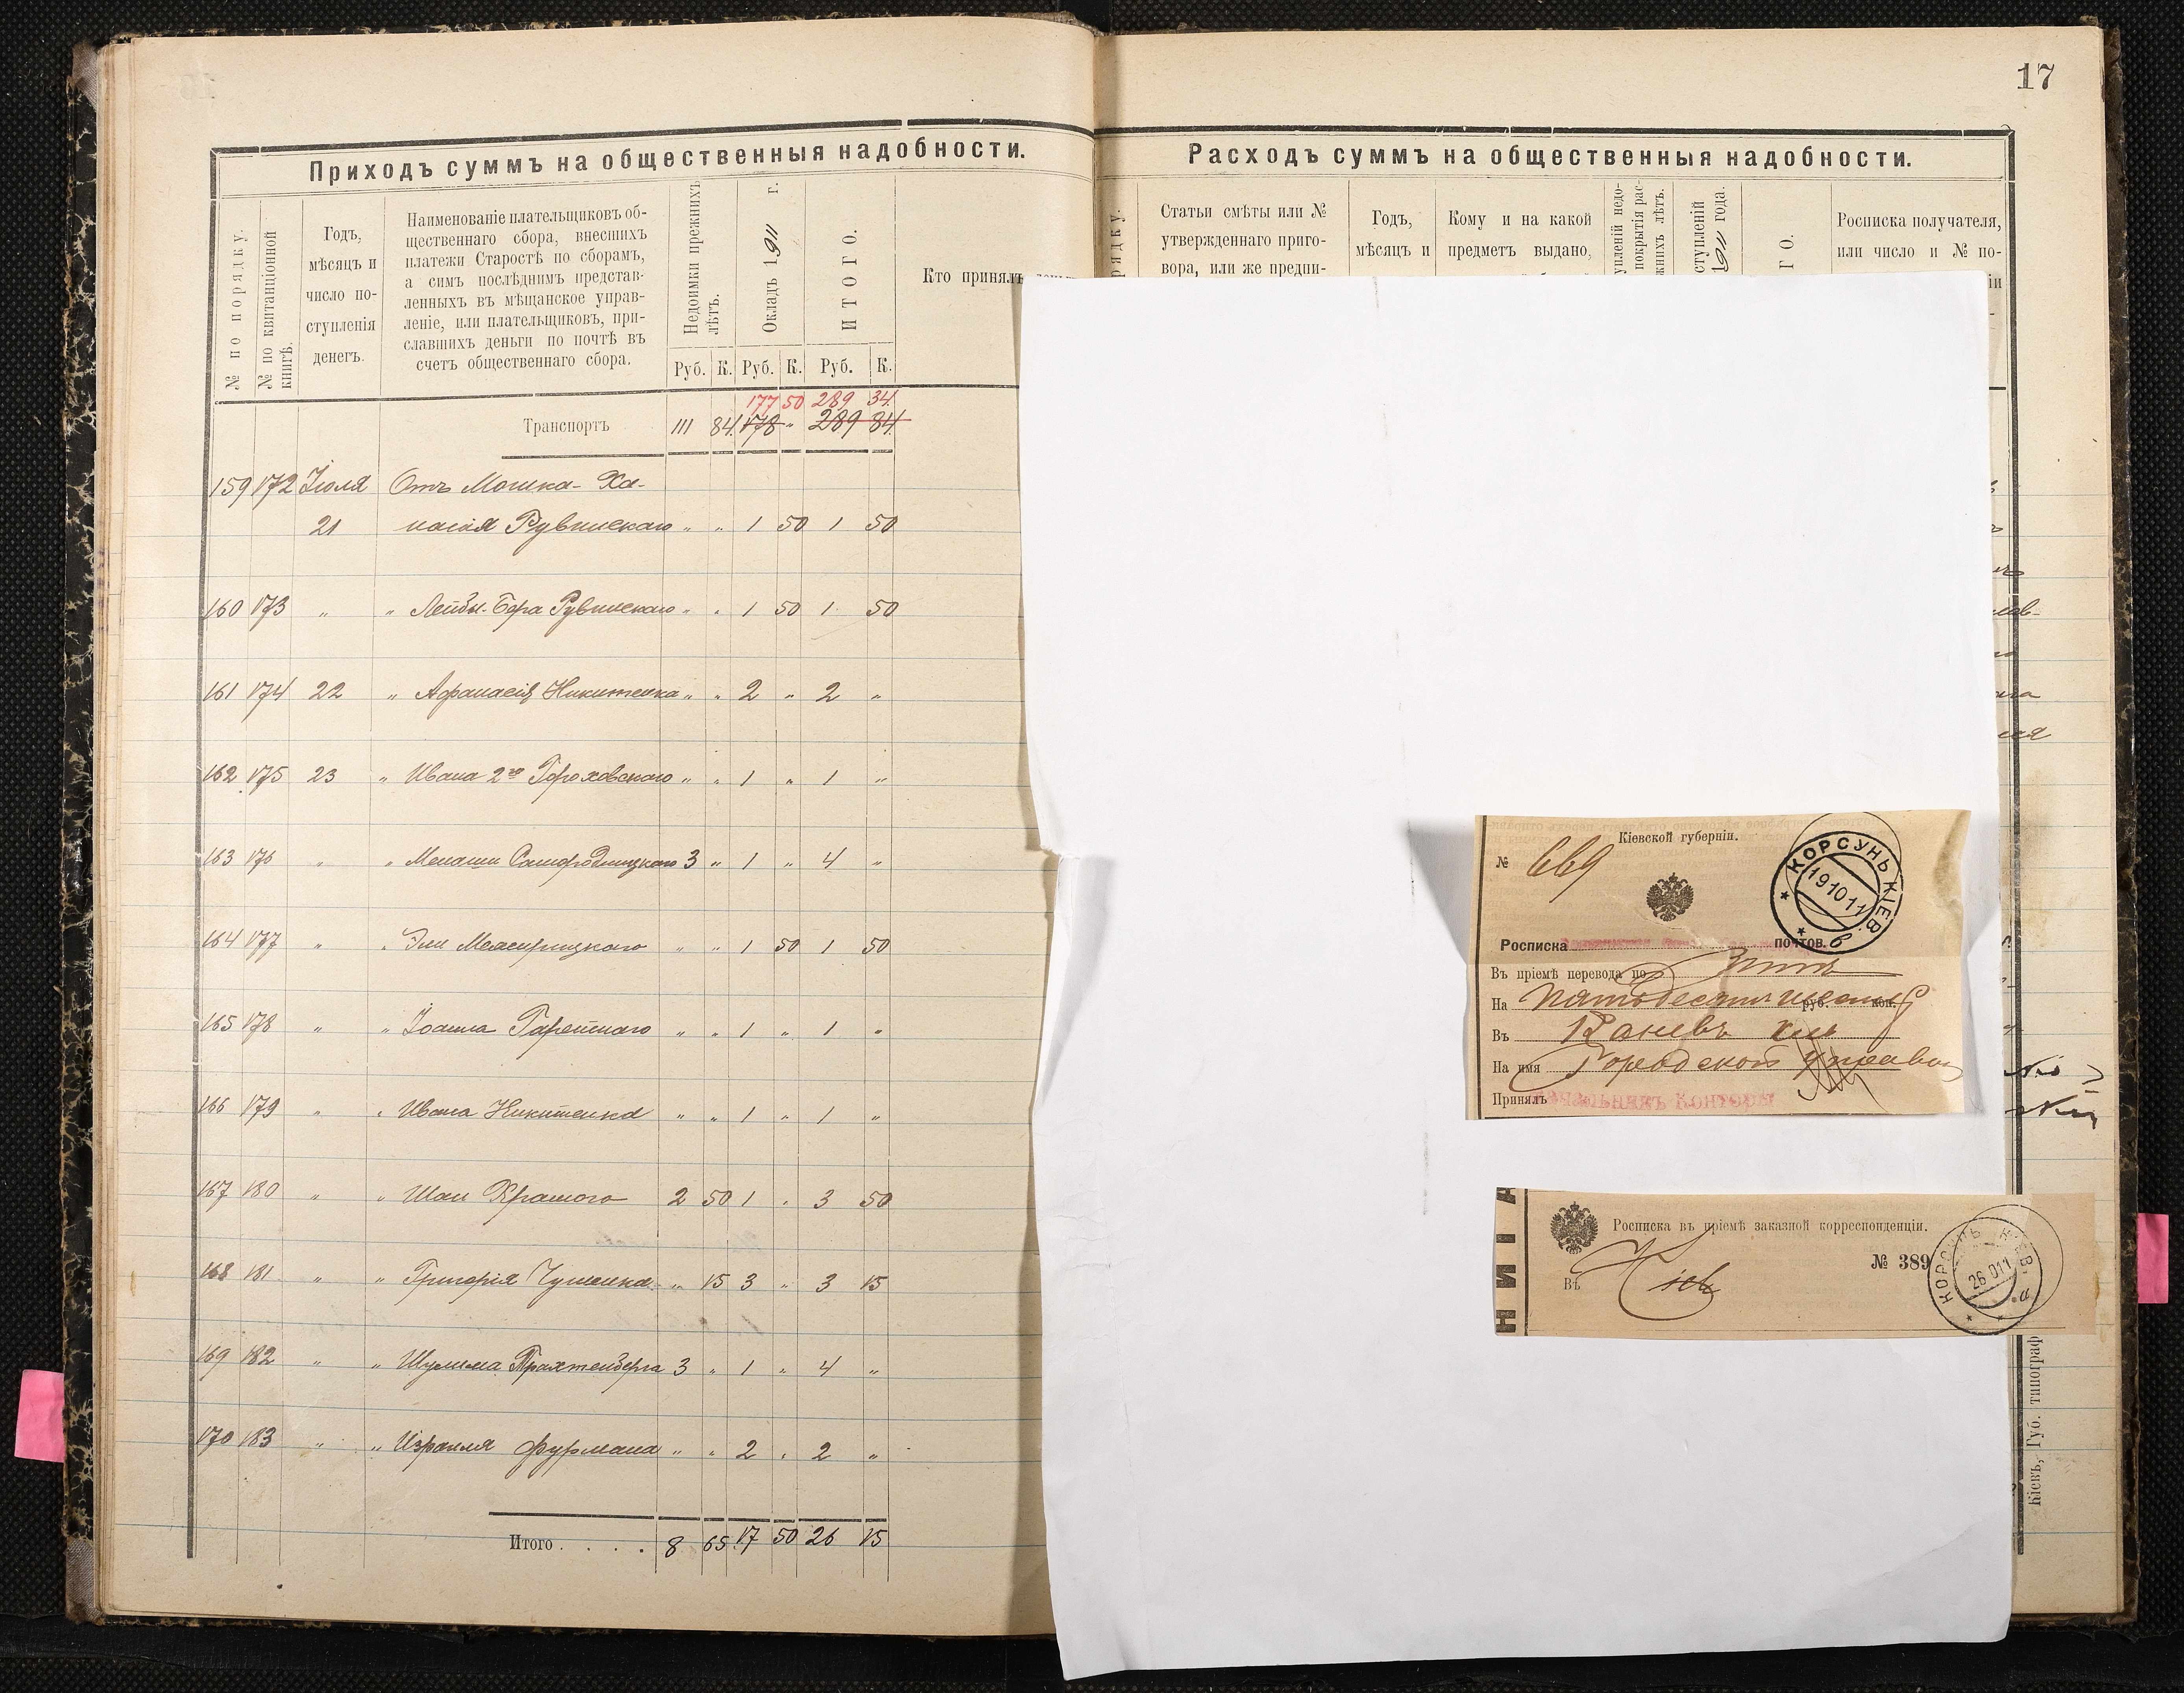 17
Приходъ суммъ на общественныя надобности.
№ по порядку.
№ по квитанціонной книгѣ.
Годъ,
мѣсяцъ и
число по-
ступленія
денегъ.
Наименованіе плательщиковъ об-
щественнаго сбора, внесшихъ
платежи Старостѣ по сборамъ,
а симъ послѣднимъ представ-
ленныхъ въ мѣщанское управ-
леніе, или плательщиковъ, при-
славшихъ деньги по почтѣ въ
счетъ общественнаго сбора.
Недоимки прежнихъ лѣтъ.
Окладъ 1911 г.
ИТОГО.
Кто принялъ
Руб. К. Руб. К. Руб. К.
177 50 289 34
Транспортъ 111 84 178 " 289 84
159 172 Іюля Отъ Мошка-Ха-
21 насія Рувинскаго " " 1 50 1 50
160 173 " " Лейбы-Бера Рувинскаго " " 1 50 1 50
161 174 22 " Афанасія Никитенка " " 2 " 2 "
162 175 23 " Ивана 2го Гороховскаго " " 1 " 1 "
163 176 " " Менаши Самородницкаго 3 " 1 " 4 "
164 177 " " Эли Межирицкаго " " 1 50 1 50
165 178 " " 1 " 1 "
166 179 " " Ивана Никитенка " " 1 " 1 "
167 180 " " 2 50 1 " 3 50
168 181 " " Григорія " 15 3 " 3 15
169 182 " " Шулима Трахтенберга 3 " 1 " 4 "
170 183 " " Израиля Фурмана " " 2 " 2 "
Итого . . . . 8 65 17 50 26 15
Расходъ суммъ на общественныя надобности.
Статьи смѣты или №
утвержденнаго приго-
вора, или же предпи-
Годъ,
мѣсяцъ и
Кому и на какой
предметъ выдано,
1911 года.
Росписка получателя,
или число и № по-
Кіевской губерніи.
№ 669
КОРСУНЬ КІЕВ.
191011
в
Росписка ПОЧТОВ.
Въ пріемѣ перевода по
На пятьдесятъ шесть руб. коп.
Въ Каневъ
На имя Городской Управы
Принялъ Начальникъ Конторы
НИГА
Росписка въ пріемѣ заказной корреспонденціи.
№ 389
Въ Кіевъ
КОРСУНЬ КІЕВ.
а
Кіевъ, Губ. типограф